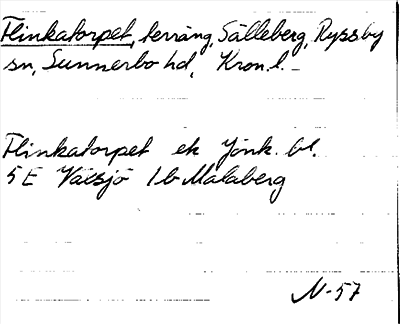 Flinkatorpet, terräng, Sälleberg, Ryssby
sn, Sunnerbo hd, Kron. l. –
Flinkatorpet ek Jönk. bl.
5E Växsjö 1b Målaberg
N-57